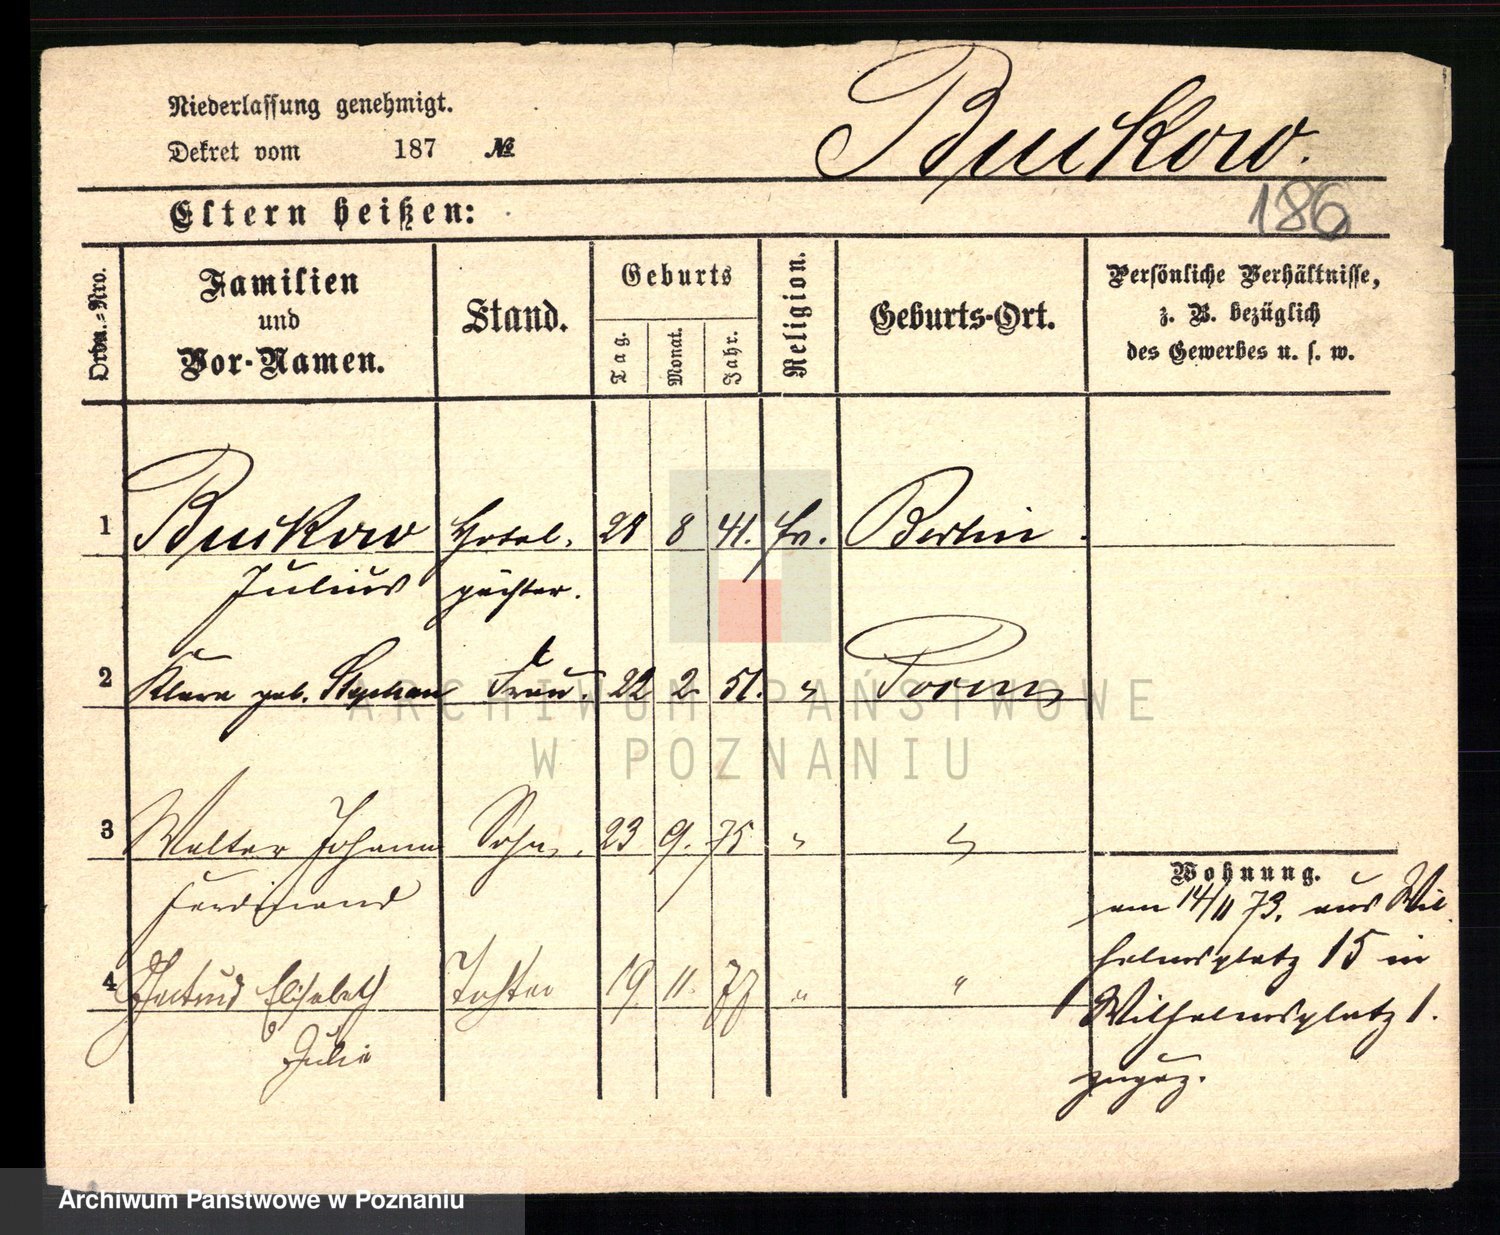 Niederlassung genehmigt.
Dekret vom 187 №
Buckow.
186
Eltern heißen:
Ordn.-Nro.
Familien
und
Vor-Namen.
Stand.
Geburts
Tag.
Monat.
Jahr.
Religion.
Geburts-Ort.
Persönliche Verhältnisse,
z. B. bezüglich
des Gewerbes u. s. w.
1 Buckow Hotel- 28 8 41. Ev. Berlin.
Julius pächter.
2 Klara geb. Stephan Frau. 22 2. 51. " Posen
3 Walter Johann Sohn. 23 9. 75 " "
Ferdinand
4 Gertrud Elisabeth Tochter 19. 11. 77 " "
Julie
Wohnung.
am 14/11 73. aus Wil-
helmsplatz 15 in
Wilhelmsplatz 1.
zugez.
ARCHIWUM PAŃSTWOWE
W POZNANIU
Archiwum Państwowe w Poznaniu